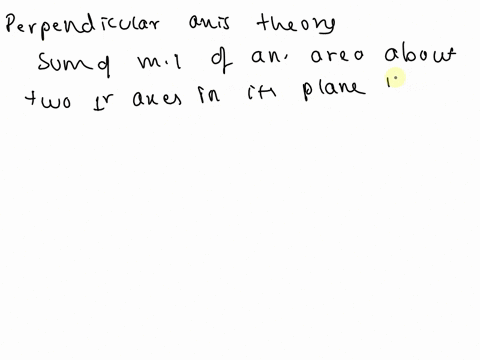 Perpendicular axis theory
Sum of m.i of an. area about
two ⊥r axes in its plane i